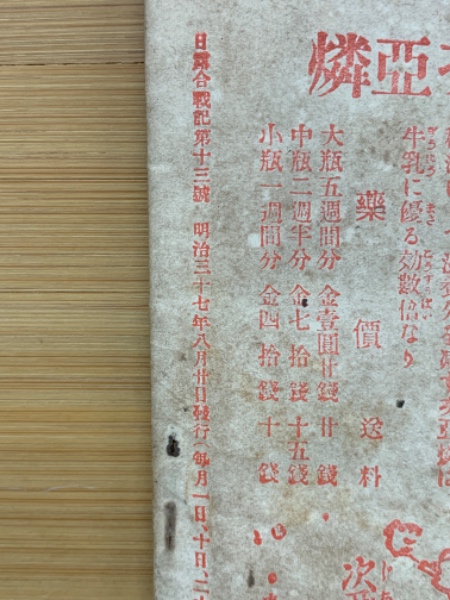 亞燐
牛乳に優る効數倍なり
藥價 送料
大瓶五週間分 金壹圓廿錢 廿錢
中瓶二週半分 金七拾錢 十五錢
小瓶一週間分 金四拾錢 十錢
次
日露合戰記第十三號 明治三十七年八月廿日發行(毎月一日、十日、二